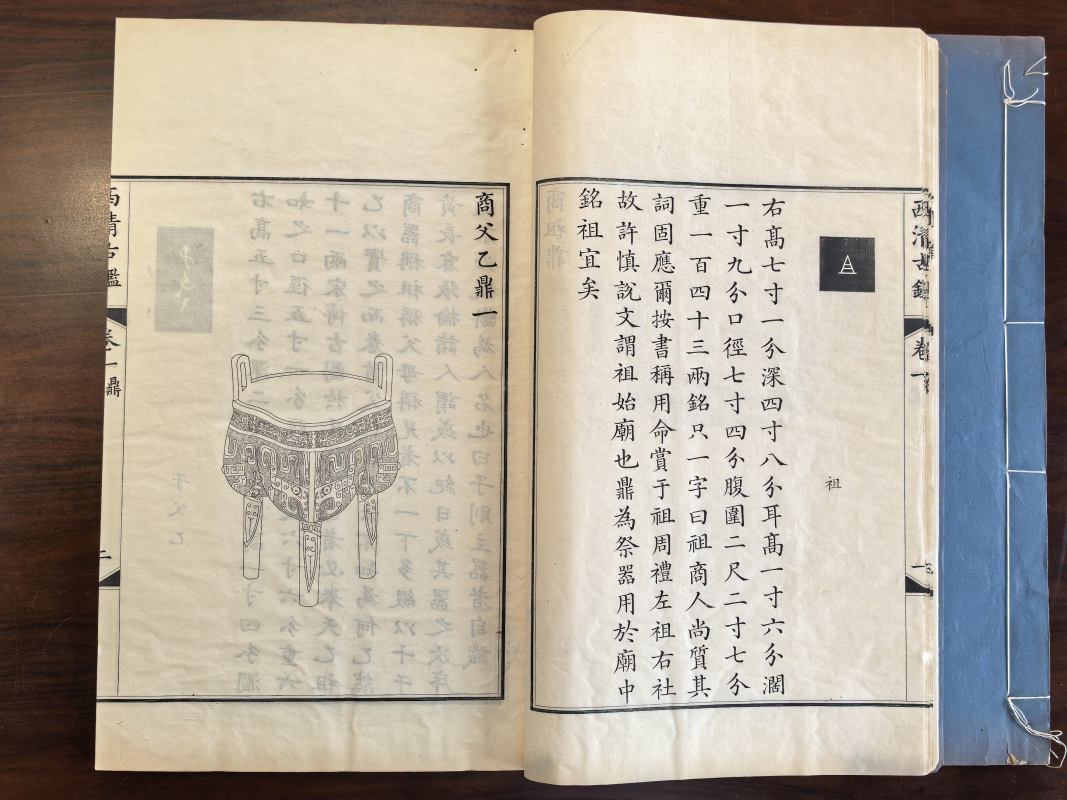 西清古鑑
卷一
祖
右髙七寸一分深四寸八分耳髙一寸六分濶
一寸九分口徑七寸四分腹圍二尺二寸七分
重一百四十三兩銘只一字曰祖商人尚質其
詞固應爾按書稱用命賞于祖周禮左祖右社
故許慎說文謂祖始廟也鼎為祭器用於廟中
銘祖宜矣
商父乙鼎一
西清古鑑
卷一 鼎
二